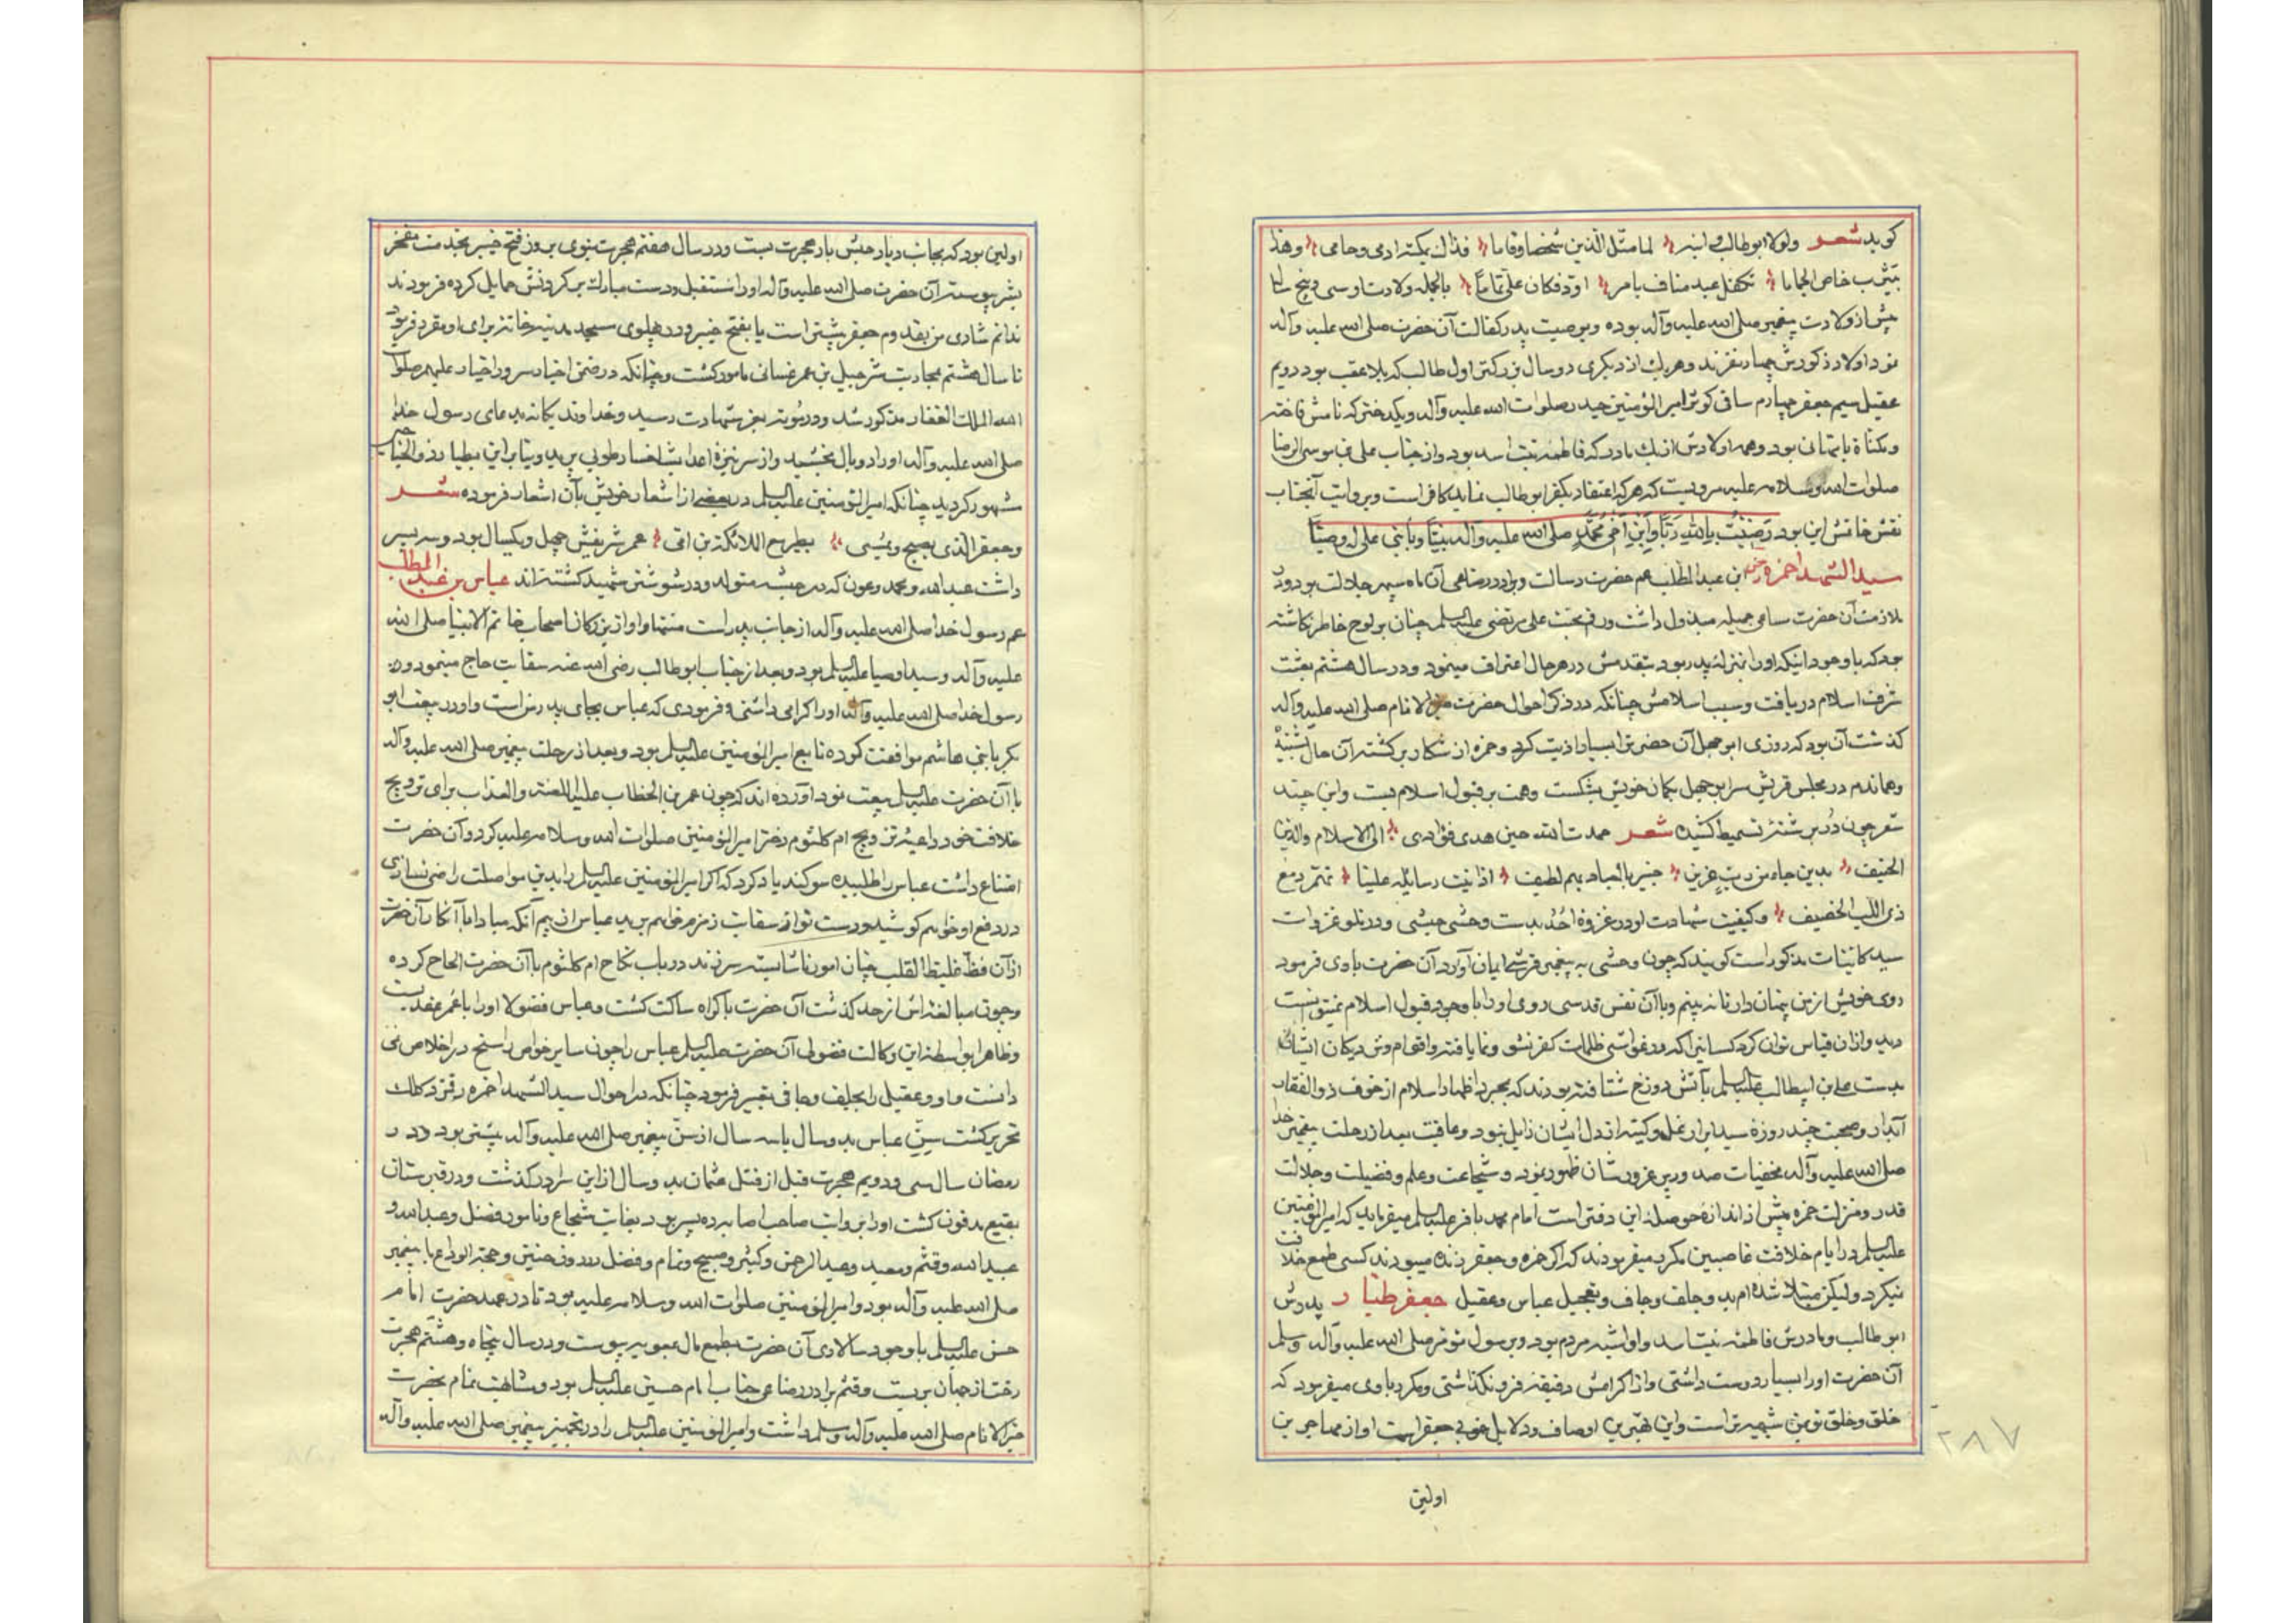 كويد شعر ولولا ابو طالب و ابنه لما مثل الدين شخصا وقاما فذاك بمكة ادى وحامى وهذا
بيثرب خاض الحماما تكفل عبد مناف بامر اودى فكان على تماما بالجمله ولادت او سى و پنج سال
پیش از ولادت پیغمبر صلى الله عليه وآله بوده و بوصیت پدر کفالت آن حضرت صلى الله عليه وآله
نمود اولاد ذكورش چهار نفرند وهر يك از ديكرى دو سال بزركتر اول طالب كه بلا عقب بود دويم
عقيل سيم جعفر چهارم ساقى كوثر امير المؤمنين حيدر صلوات الله عليه وآله ويكدختر كه نامش فاخته
ومكناة بامهانى بود وهمه اولادش از يك مادر كه فاطمه بنت اسد بود واز جناب على بن موسى الرضا
صلوات الله وسلامه عليه مرويست كه هر كه اعتقاد بكفر ابو طالب نمايد كافر است وبروايت آنجناب
نقش خاتمش اين بود رضيت بالله ربا وبابن اخى محمد صلى الله عليه وآله نبيا وبابنى على له وصيا
سيد الشهدا حمزه بن عبد المطلب عم حضرت رسالت وبرادر رضاعى آن ماه سپهر جلالت بود ودر
ملازمت آن حضرت مساعى جميله مبذول داشت ورقم محبت على مرتضى عليه السلم چنان بر لوح خاطر نكاشته
بود كه با وجود اينكه او را بمنزله پدر بود بتقدمش در هر حال اعتراف مينمود ودر سال هشتم بعثت
شرف اسلام دريافت وسبب اسلامش چنانكه در ذكر احوال حضرت خير الانام صلى الله عليه وآله
كذشت آن بود كه روزى ابو جهل آن حضرت را بسيار اذيت كرد وحمزه از شكار بركشته آن حال بشنيد
وهماندم در مجلس قريش سر ابو جهل بكمان خويش بشكست وهمت بر قبول اسلام بست واين چند
شعر چون در بر شته تسميط كشيد شعر حمدت الله حين هدى فؤادى الى الاسلام والدين
الحنيف بدين جاء من رب عزيز خبير بالعباد بهم لطيف اذا تليت رسائله علينا تحدر دمع
ذى اللب الحصيف وكيفيت شهادت او در غزوه احد بدست وحشى حبشى ودر تلو غزوات
سيد كائنات مذكور است كويند كه چون وحشى به پيغمبر قرشى ايمان آورد آن حضرت با وى فرمود
روى خويش از من پنهان دار تا نه بينم وبا آن نفس قدسى روى او را با وجود قبول اسلام نميتوانست
ديد واز ان قياس توان كرد كسانيرا كه در غواشى ظلمات كفر نشو ونما يافته واقوام وخويشان ايشان
بدست على بن ابيطالب عليه السلم بآتش دوزخ شتافته بودند كه بمجرد اظهار اسلام از خوف ذو الفقار
آبدار وصحبت چند روزه سيد ابرار غل وكينه از دل ايشان زايل نبود وعاقبت بعد از رحلت پيغمبر خدا
صلى الله عليه وآله مخفيات صدور پر غرورشان ظهور نمود وشجاعت وعلم وفضيلت وجلالت
قدر ومنزلت حمزه بيش از اندازه حوصله اين دفتر است امام محمد باقر عليه السلم ميفرمايد كه امير المؤمنين
عليه السلم در ايام خلافت غاصبين مكرر ميفرمودند كه اكر حمزه وجعفر زنده ميبودند كسى طمع خلافت
نميكرد وليكن مبتلا شده ام بدو جلف وجاف عباس وعقيل جعفر طيار پدرش
ابو طالب ومادرش فاطمه بنت اسد واو اشبه مردم بود برسول مؤتمن صلى الله عليه وآله وسلم
آن حضرت او را بسيار دوست داشتى واز اكرامش دقيقه فرو نكذاشتى ومكرر با وى ميفرمود كه
خلق وخلق تو بمن شبيه تر است واين بهترين اوصاف ودلايل خوبى جعفر است او از مهاجرين
٢٨٧
اولين
اولين بود كه بجانب ديار حبش بار هجرت بست ودر سال هفتم هجرت نبوى بروز فتح خيبر بخدمت مفخر
بشر پيوسته آن حضرت صلى الله عليه وآله او را استقبال ودست مبارك بر كردنش حمايل كرده فرمودند
ندانم شادى من بقدوم جعفر بيشتر است يا بفتح خيبر ودر پهلوى مسجد مدينه خانه براى او مقرر فرمود
تا سال هشتم بمحاربت شرحبيل بن عمر غسانى مامور كشت وچنانكه در ضمن اخبار سرور اخيار عليهم صلوات
الله الملك الغفار مذكور شد ودر موته بعز شهادت رسيد وخداوند يكانه بدعاى رسول خدا
صلى الله عليه وآله او را دو بال بخشيد واز سر نيزه اعدا بشاخسار طوبى پريد وبنابراين بطيار وذو الجناحين
مشهور كرديد چنانكه امير المؤمنين عليه السلم در بعضى از اشعار خويش بآن اشعار فرموده شعر
وجعفر الذى يصبح ويمسى يطير مع الملائكة ابن امى عمر شريفش چهل ويكسال بود وسه پسر
داشت عبد الله ومحمد وعون كه در حبشه متولد ودر شوشتر شهيد كشته اند عباس بن عبد المطلب
عم رسول خدا صلى الله عليه وآله از جانب پدر است منتها واو از بزركان اصحاب خاتم الانبيا صلى الله
عليه وآله وسيد اوصيا عليه السلم بود وبعد از جناب ابو طالب رضى الله عنه سقايت حاج مينمود
رسول خدا صلى الله عليه وآله او را كرامى داشتى وفرمودى كه عباس بجاى پدر من است واو در بيعت ابو
بكر با بنى هاشم موافقت كرده تابع امير المؤمنين عليه السلم بود وبعد از رحلت پيغمبر صلى الله عليه وآله
با آن حضرت عليه السلم بيعت نمود آورده اند كه چون عمر بن الخطاب عليه اللعنة والعذاب براى ترويج
خلافت خود داعيه تزويج ام كلثوم دختر امير المؤمنين صلوات الله وسلامه عليه كرد وآن حضرت
امتناع داشت عباس را طلبيده سوكند ياد كرد كه اكر امير المؤمنين عليه السلم را بدين مواصلت راضى نسازى
در دفع او خواهم كوشيد ودست تو از سقايت زمزم خواهم بريد عباس از بيم آنكه مبادا با انكار آن حضرت
از آن فظ غليظ القلب چنان امور ناشايسته سر زند در باب نكاح ام كلثوم با آن حضرت الحاح كرده
وچون مبالغه اش از حد كذشت آن حضرت باكراه ساكت كشت وعباس فضولا او را با عمر عقد بست
وظاهرا بواسطه اين وكالت فضولى آن حضرت عليه السلم عباس را چون ساير خواص راسخ در اخلاص نمى
دانست واو وعقيل را بجلف وجافى تعبير فرمود چنانكه در احوال سيد الشهدا حمزه رقمزد كلك
تحرير كشت سن عباس بدو سال يا سه سال از سن پيغمبر صلى الله عليه وآله بيشتر بود ودر
رمضان سال سى ودويم هجرت قبل از قتل عثمان بدو سال از اين سرا در كذشت ودر قبرستان
بقيع مدفون كشت او را بروايت صاحب اصابه ده پسر بود بغايت شجاع ونامور فضل وعبد الله و
عبيد الله وقثم ومعبد وعبد الرحمن وكثير وصبيح وتمام وفضل در روز حنين وحجة الوداع با پيغمبر
صلى الله عليه وآله بود وامير المؤمنين صلوات الله وسلامه عليه بود تا در عهد حضرت امام
حسن عليه السلم با وجود سالارى آن حضرت بطمع مال بمعويه پيوست ودر سال پنجاه وهشتم هجرت
رخت از جهان بربست وقثم برادر رضاعى جناب امام حسين عليه السلم بود ومشابهت تمام بحضرت
خير الانام صلى الله عليه وآله وسلم داشت وامير المؤمنين عليه السلم را در تجهيز پيغمبر صلى الله عليه وآله